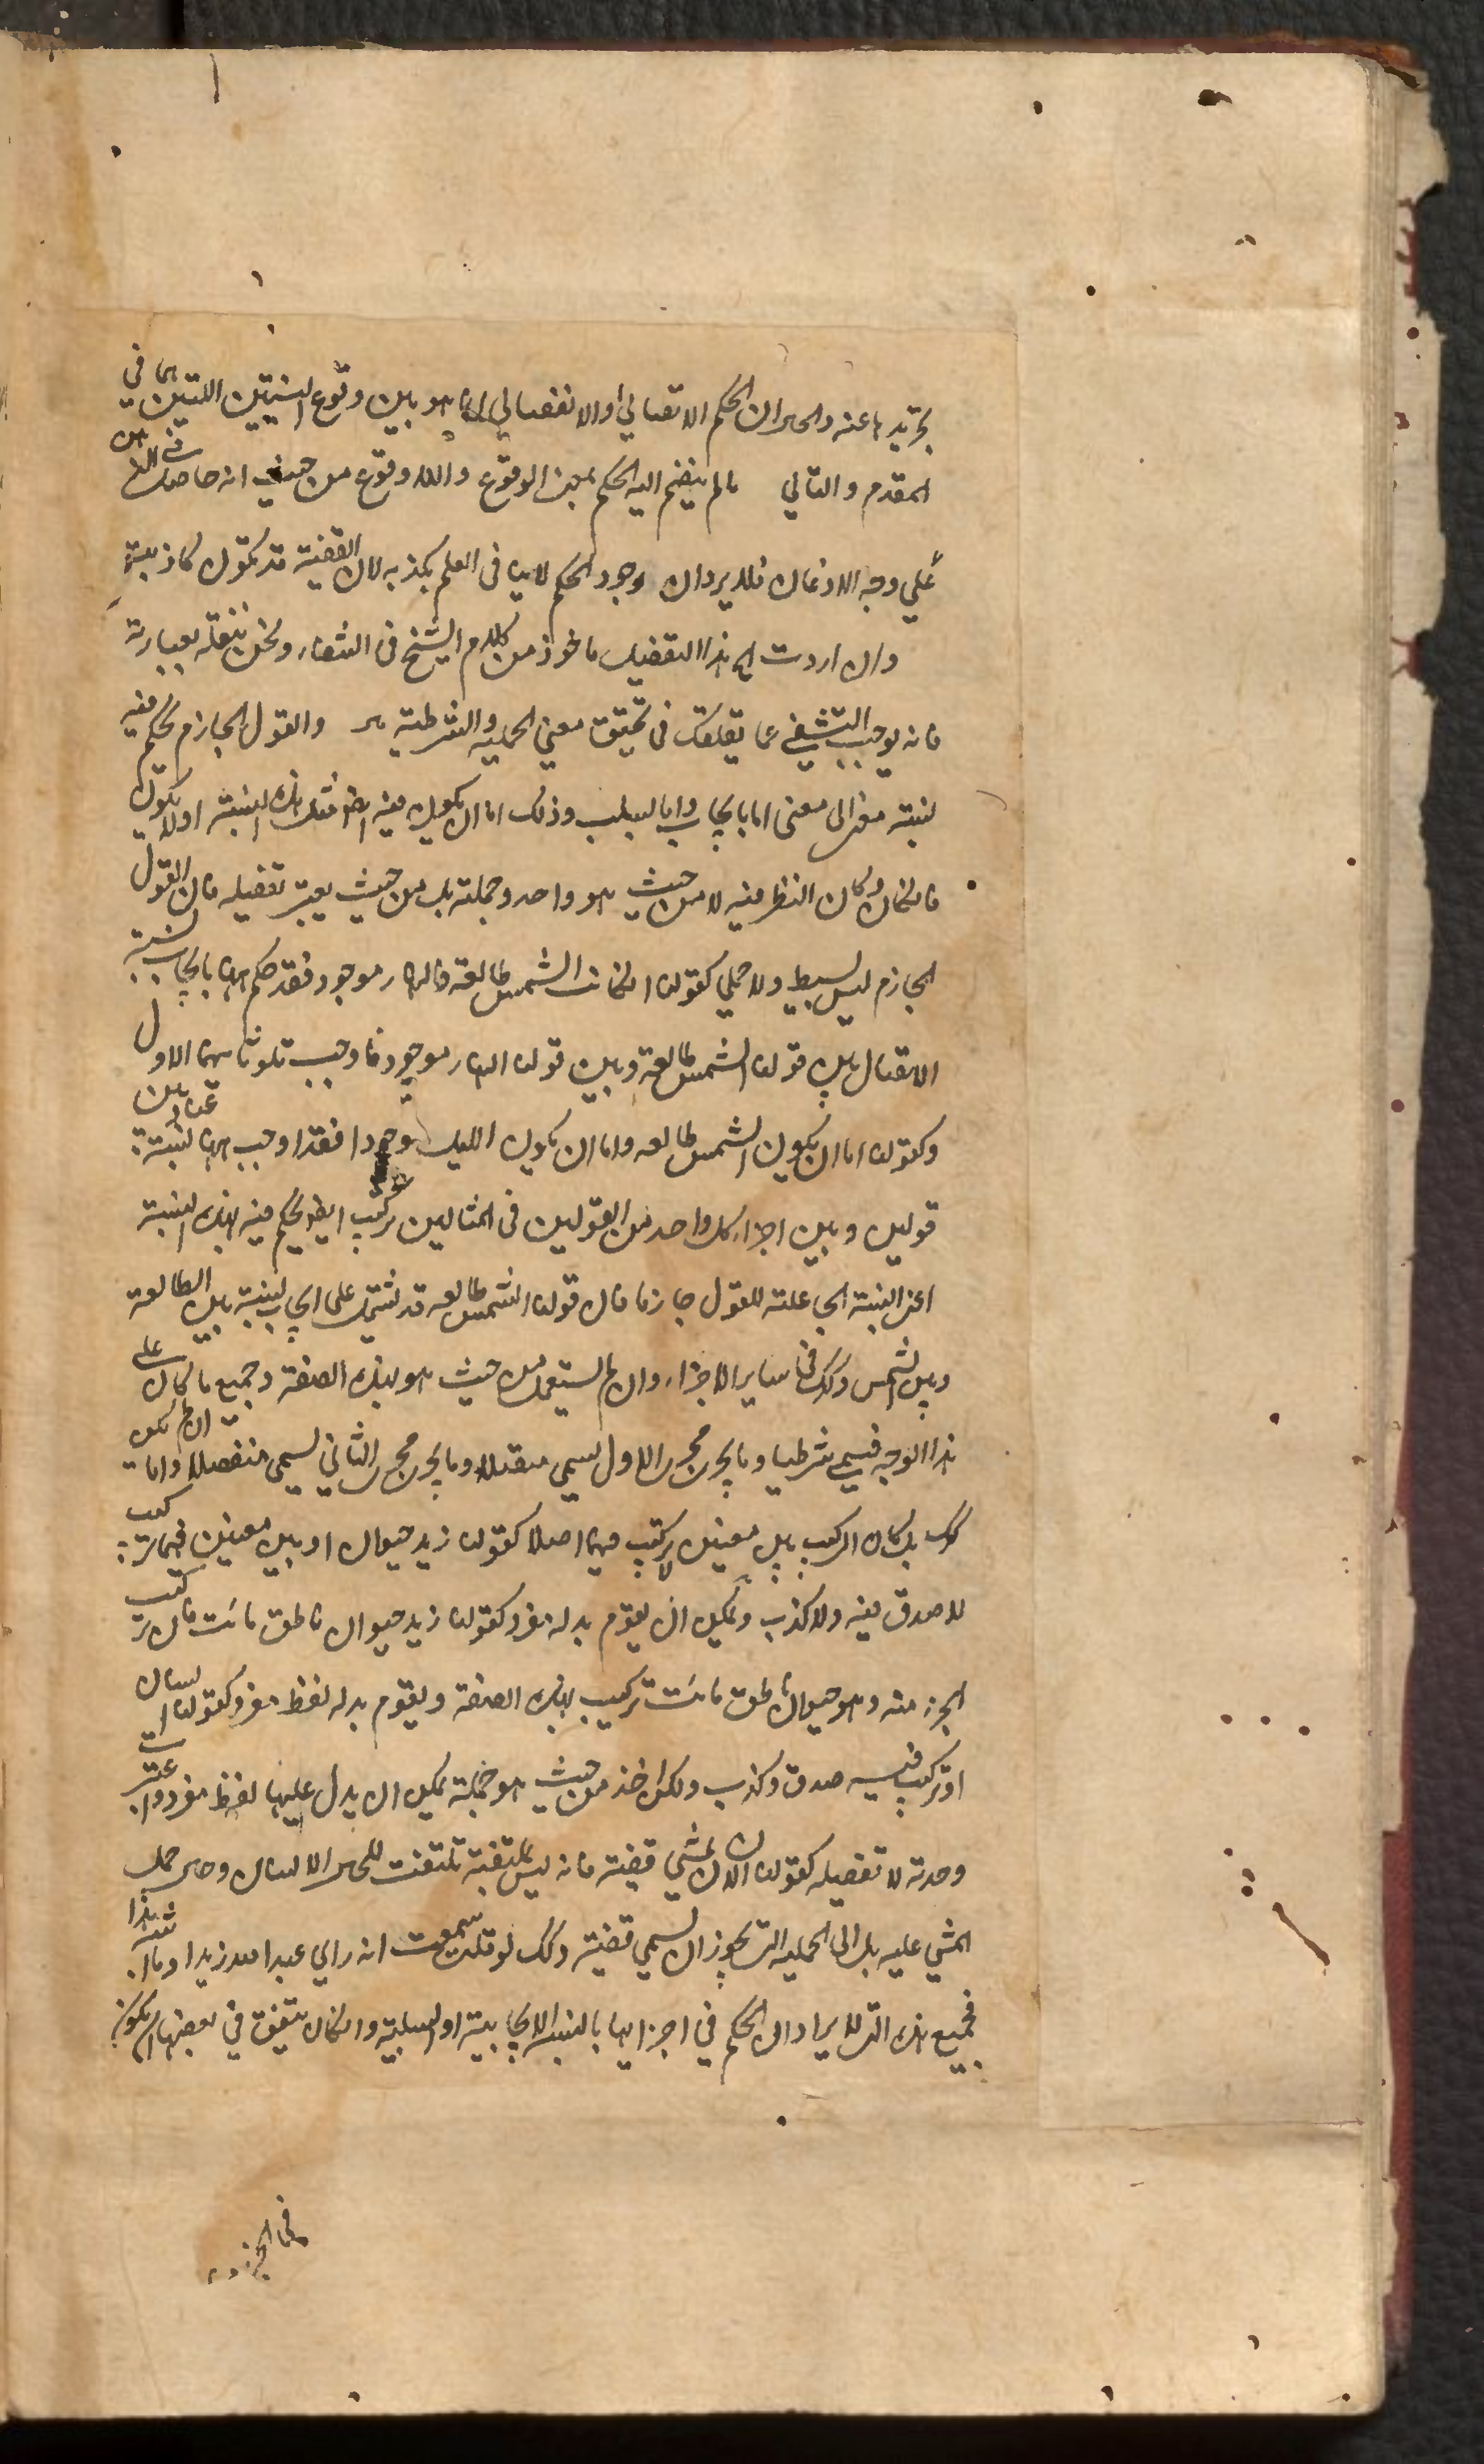 تجريدها عنه والحق ان الحكم الاتصالي او الانفصالي انما هو بين وقوع النسبتين اللتين هما في
المقدم والتالي ما لم ينضم اليه الحكم بمعنى الوقوع واللا وقوع من حيث انه حاصل في الذهن
على وجه الاذعان فلا يرد ان وجود الحكم لا ينافي العلم بكذبه لان القضية قد تكون كاذبة
وان اردت هذا التفصيل ماخوذ من كلام الشيخ في الشفاء ونحن ننقله بعبارته
فانه يوجب التشفي عما يقلقك في تحقيق معنى الحملية والشرطية والقول الجازم يحكم فيه
نسبة معنى الى معنى اما بايجاب واما بسلب وذلك اما ان يكون فيه ايضا مثل هذه النسبة او لا يكون
فان كان وكان النظر فيه لا من حيث هو واحد وجملة بل من حيث يعتبر تفصيله فان القول
الجازم ليس ببسيط ولا حملي كقولنا ان كانت الشمس طالعة فالنهار موجود فقد حكم ههنا بايجاب نسبة
الاتصال بين قولنا الشمس طالعة وبين قولنا النهار موجود فاوجب تلو ثانيهما الاول
وكقولنا اما ان يكون الشمس طالعه واما ان يكون الليل موجودا فقد اوجب ههنا نسبة عناد بين
قولين وبين اجزاء كل واحد من القولين في المثالين تركيب ايضا يحكم فيه بهذه النسبة
اعني النسبة الجاعلة للقول جازما فان قولنا الشمس طالعه قد تشتمل على ايجاب نسبة بين الطالعة
وبين الشمس وكذلك في ساير الاجزاء وان لم يستعمل من حيث هو بهذه الصفة وجميع ما كان على
هذا الوجه فيسمى شرطيا وما يجري مجرى الاول يسمى متصلا وما يجري مجرى الثاني يسمى منفصلا واما ان لم يكن
كذلك بل كان التركيب بين معنيين لا تركيب فيهما اصلا كقولنا زيد حيوان او بين معنيين فيهما تركيب
لا صدق فيه ولا كذب ويمكن ان يقوم بدله مفرد كقولنا زيد حيوان ناطق مائت فان تركيب
الجزء منه وهو حيوان ناطق مائت تركيب بهذه الصفة ويقوم بدله لفظ مفرد كقولنا انسان
او تركيب فيه صدق وكذب ولكن اخذ من حيث هو جملة يمكن ان يدل عليها لفظ مفرد واعتبرت
وحدته لا تفصيله كقولنا الانسان يمشي قضية فانه ليس يلتفت للحمل الانسان وحمل
المشي عليه بل الى الحملية التي يجوز ان يسمى قضية وكذلك لو قلت سمعت انه راي عبد الله زيدا وما اشبه هذا
فجميع هذه التي لا يراد ان الحكم في اجزايها بالنسبة الايجابية او السلبية وان كان يتفق في بعضها ان يكون
في الجزء